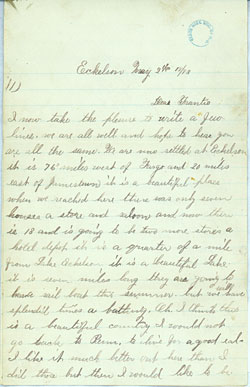 Eckelson May
11)
Dear Frantis
I now take the plesure to write a few
lines. we are all well and hope to hear you
are all the same. We are now settled at Eckelson
it is 76 miles west of Fargo and 20 miles
east of Jamestown it is a beautiful place
when we reached here there was only seven
houses a store and saloon and now there
is 18 and is going to be two more stores a
hotel depot it is a quarter of a mile
from Lake Eckelson it is a beautiful Lake
it is seven miles long they are going to
have sail boat this summer but we will have
splendid times a boating. Oh I think this
is a beautiful country I would not
go back to Penn. to live for a good eal
I like it much better out here than I
did thoe but then I would like to be